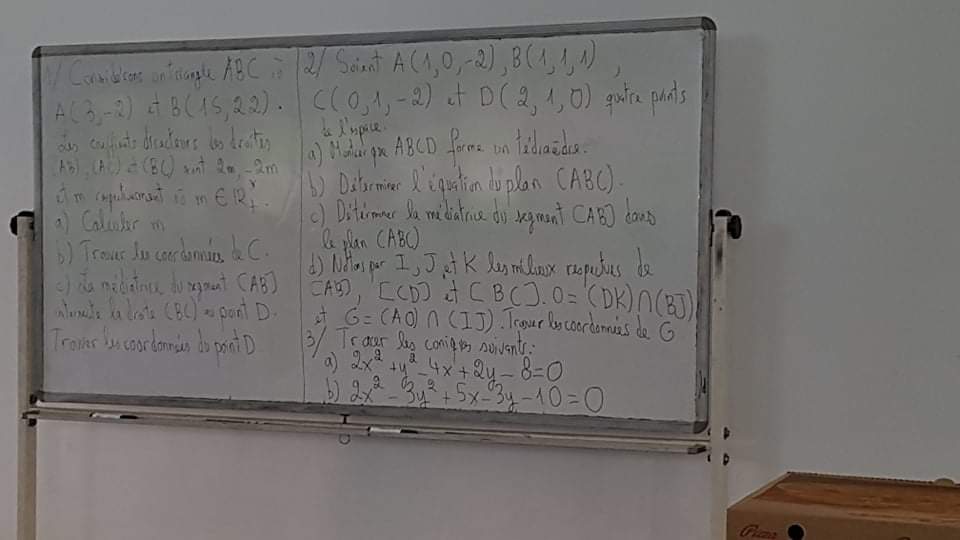 1/ Considérons un triangle ABC où
A(3,-2) et B(15,22).
Les coefficients directeurs des droites
(AB), (AC) et (BC) sont 2m, -2m
et m respectivement où m ∈ ℝ*₊.
a) Calculer m
b) Trouver les coordonnées de C.
c) La médiatrice du segment [AB]
intersecte la droite (BC) au point D.
Trouver les coordonnées du point D
2/ Soient A(1,0,-2), B(1,1,1),
C(0,1,-2) et D(2,1,0) quatre points
de l'espace.
a) Montrer que ABCD forme un tédraèdre.
b) Déterminer l'équation du plan (ABC).
c) Déterminer la médiatrice du segment [AB] dans
le plan (ABC)
d) Notons par I, J et K les milieux respectives de
[AB], [CD] et [BC]. O = (DK)∩(BJ)
et G = (AO) ∩ (IJ). Trouver les coordonnées de G
3/ Tracer les coniques suivantes:
a) 2x² + y² - 4x + 2y - 8 = 0
b) 2x² - 3y² + 5x - 3y - 10 = 0